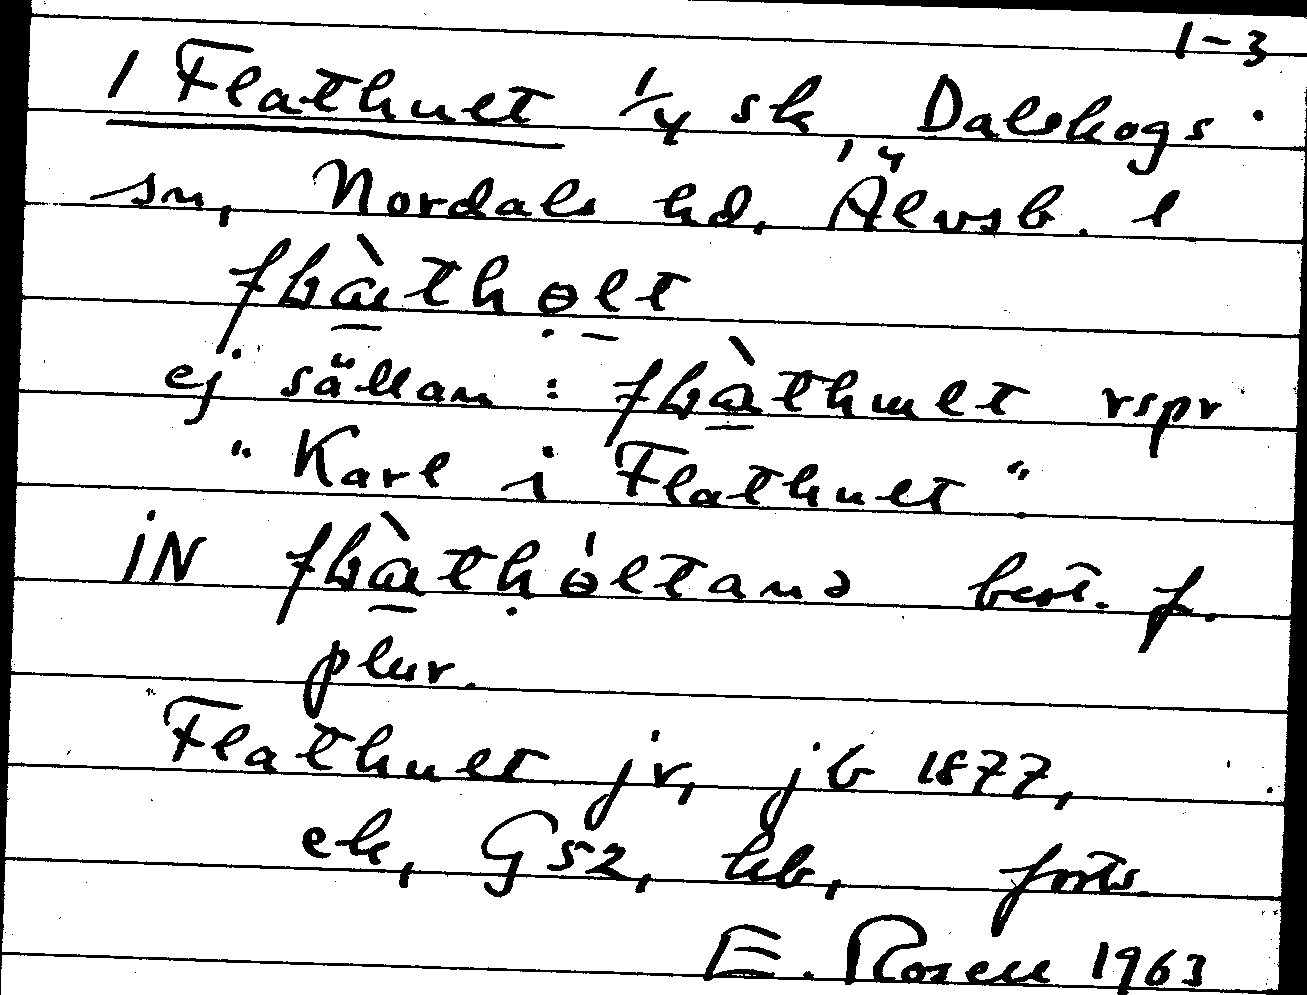 1-3
1 Flathult 1/4 sk, Dalskogs
sn, Nordals hd, Älvsb. l
flàthọlt
ej sällan: flàthult rspr
"Karl i Flathult"
IN best. f.
plur.
Flathult jr, jb 1877,
ek, GS2, hb, forts.
E. Rosell 1963